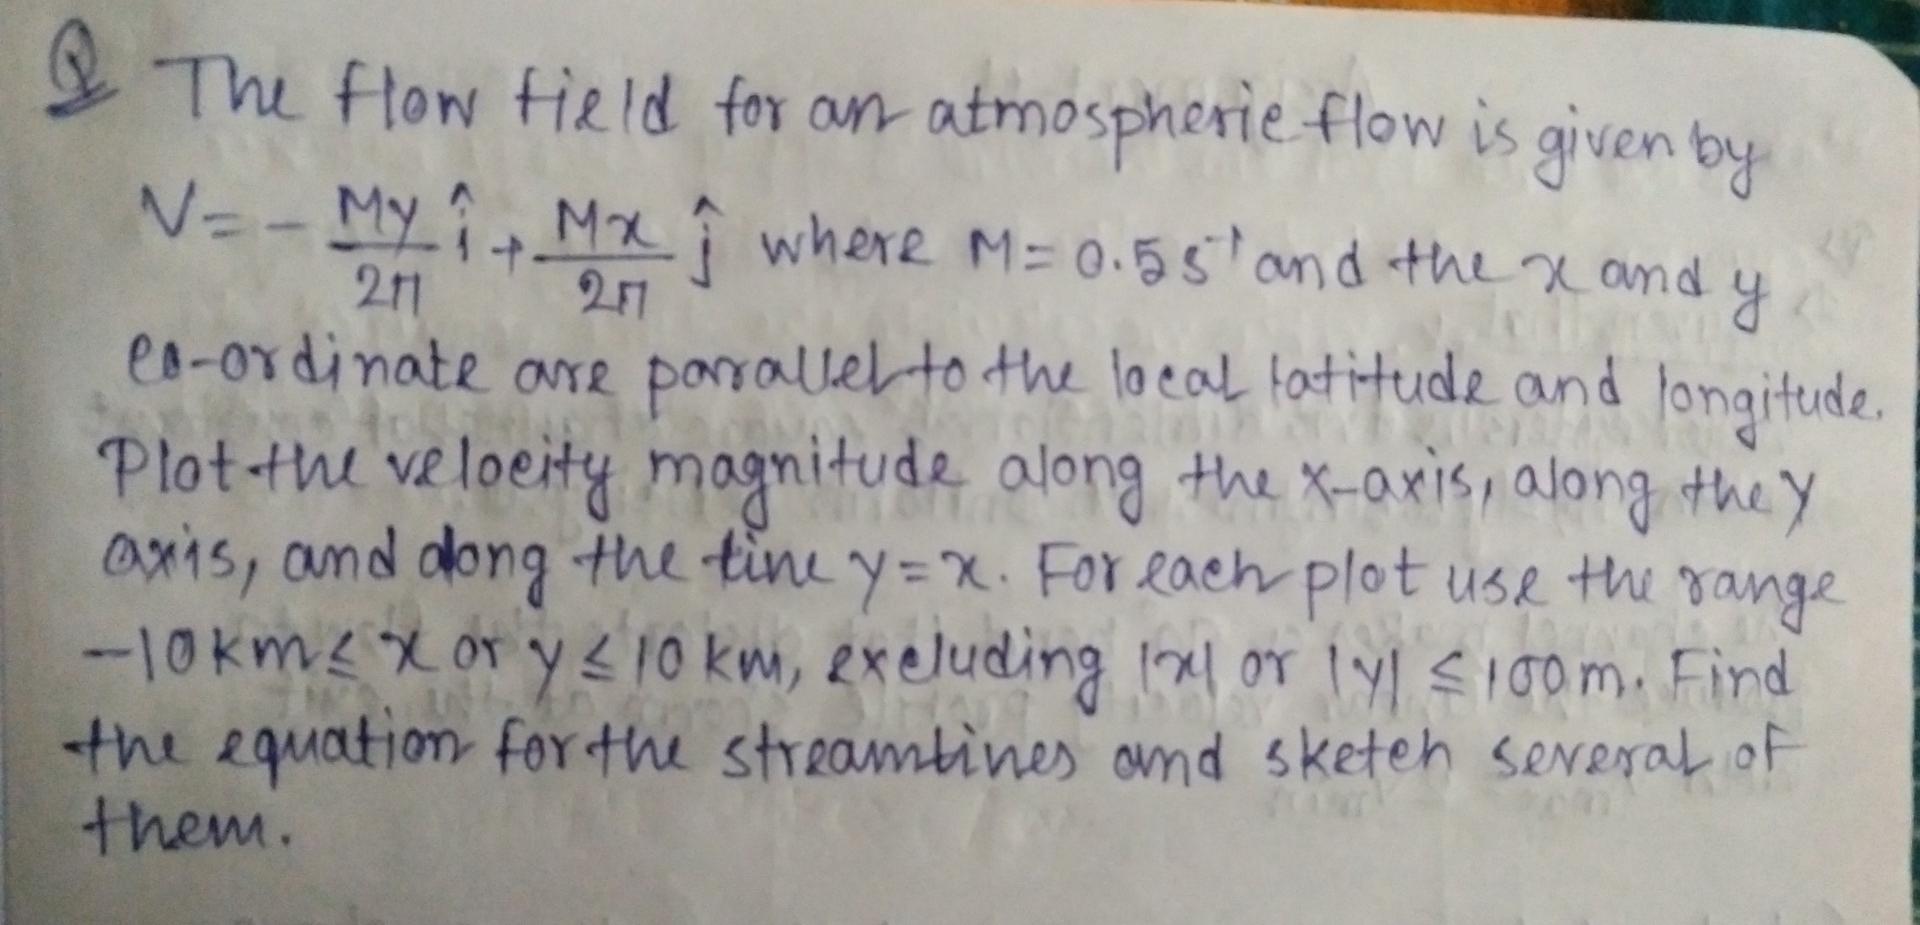 Q The flow field for an atmospheric flow is given by
V = - My/2π î + Mx/2π ĵ where M = 0.5 s⁻¹ and the x and y
co-ordinate are parallel to the local latitude and longitude.
Plot the velocity magnitude along the x-axis, along the y
axis, and along the line y = x. For each plot use the range
-10 km ≤ x or y ≤ 10 km, excluding |x| or |y| ≤ 100 m. Find
the equation for the streamlines and sketch several of
them.